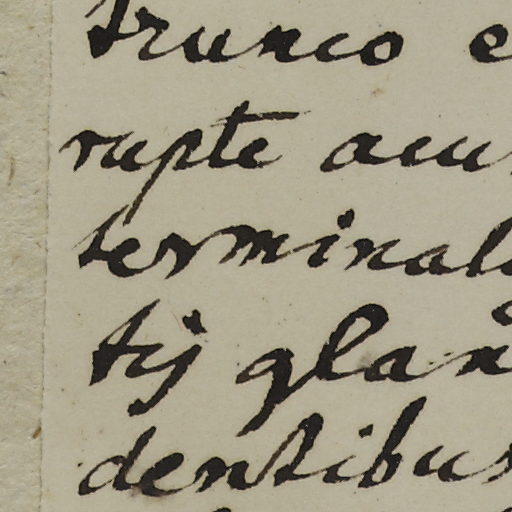 trunco e
rupte acu
terminal
tij glan
dentibus